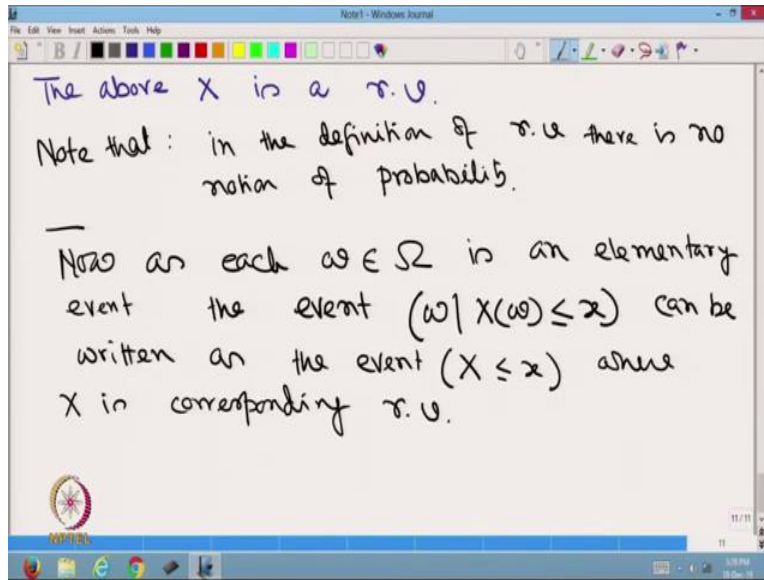 Note1 - Windows Journal
File Edit View Insert Actions Tools Help
The above X is a r.v.
Note that : in the definition of r.v there is no
notion of probability.
Now as each ω ∈ Ω is an elementary
event the event (ω| X(ω) ≤ x) can be
written as the event (X ≤ x) where
X is corresponding r.v.
NPTEL
11/11
11